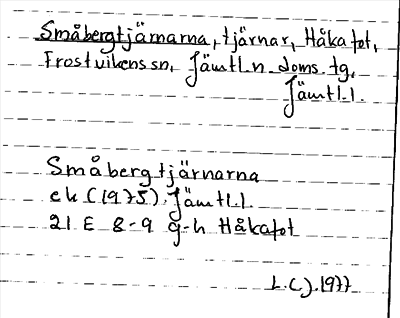 Småbergtjärnarna, tjärnar, Håkafot,
Frostvikens sn, Jämtl. n. doms. tg,
Jämtl. l.
Småbergtjärnarna
ek (1975) Jämtl. l.
21 E 8-9 g-h Håkafot
L.C.J. 1977